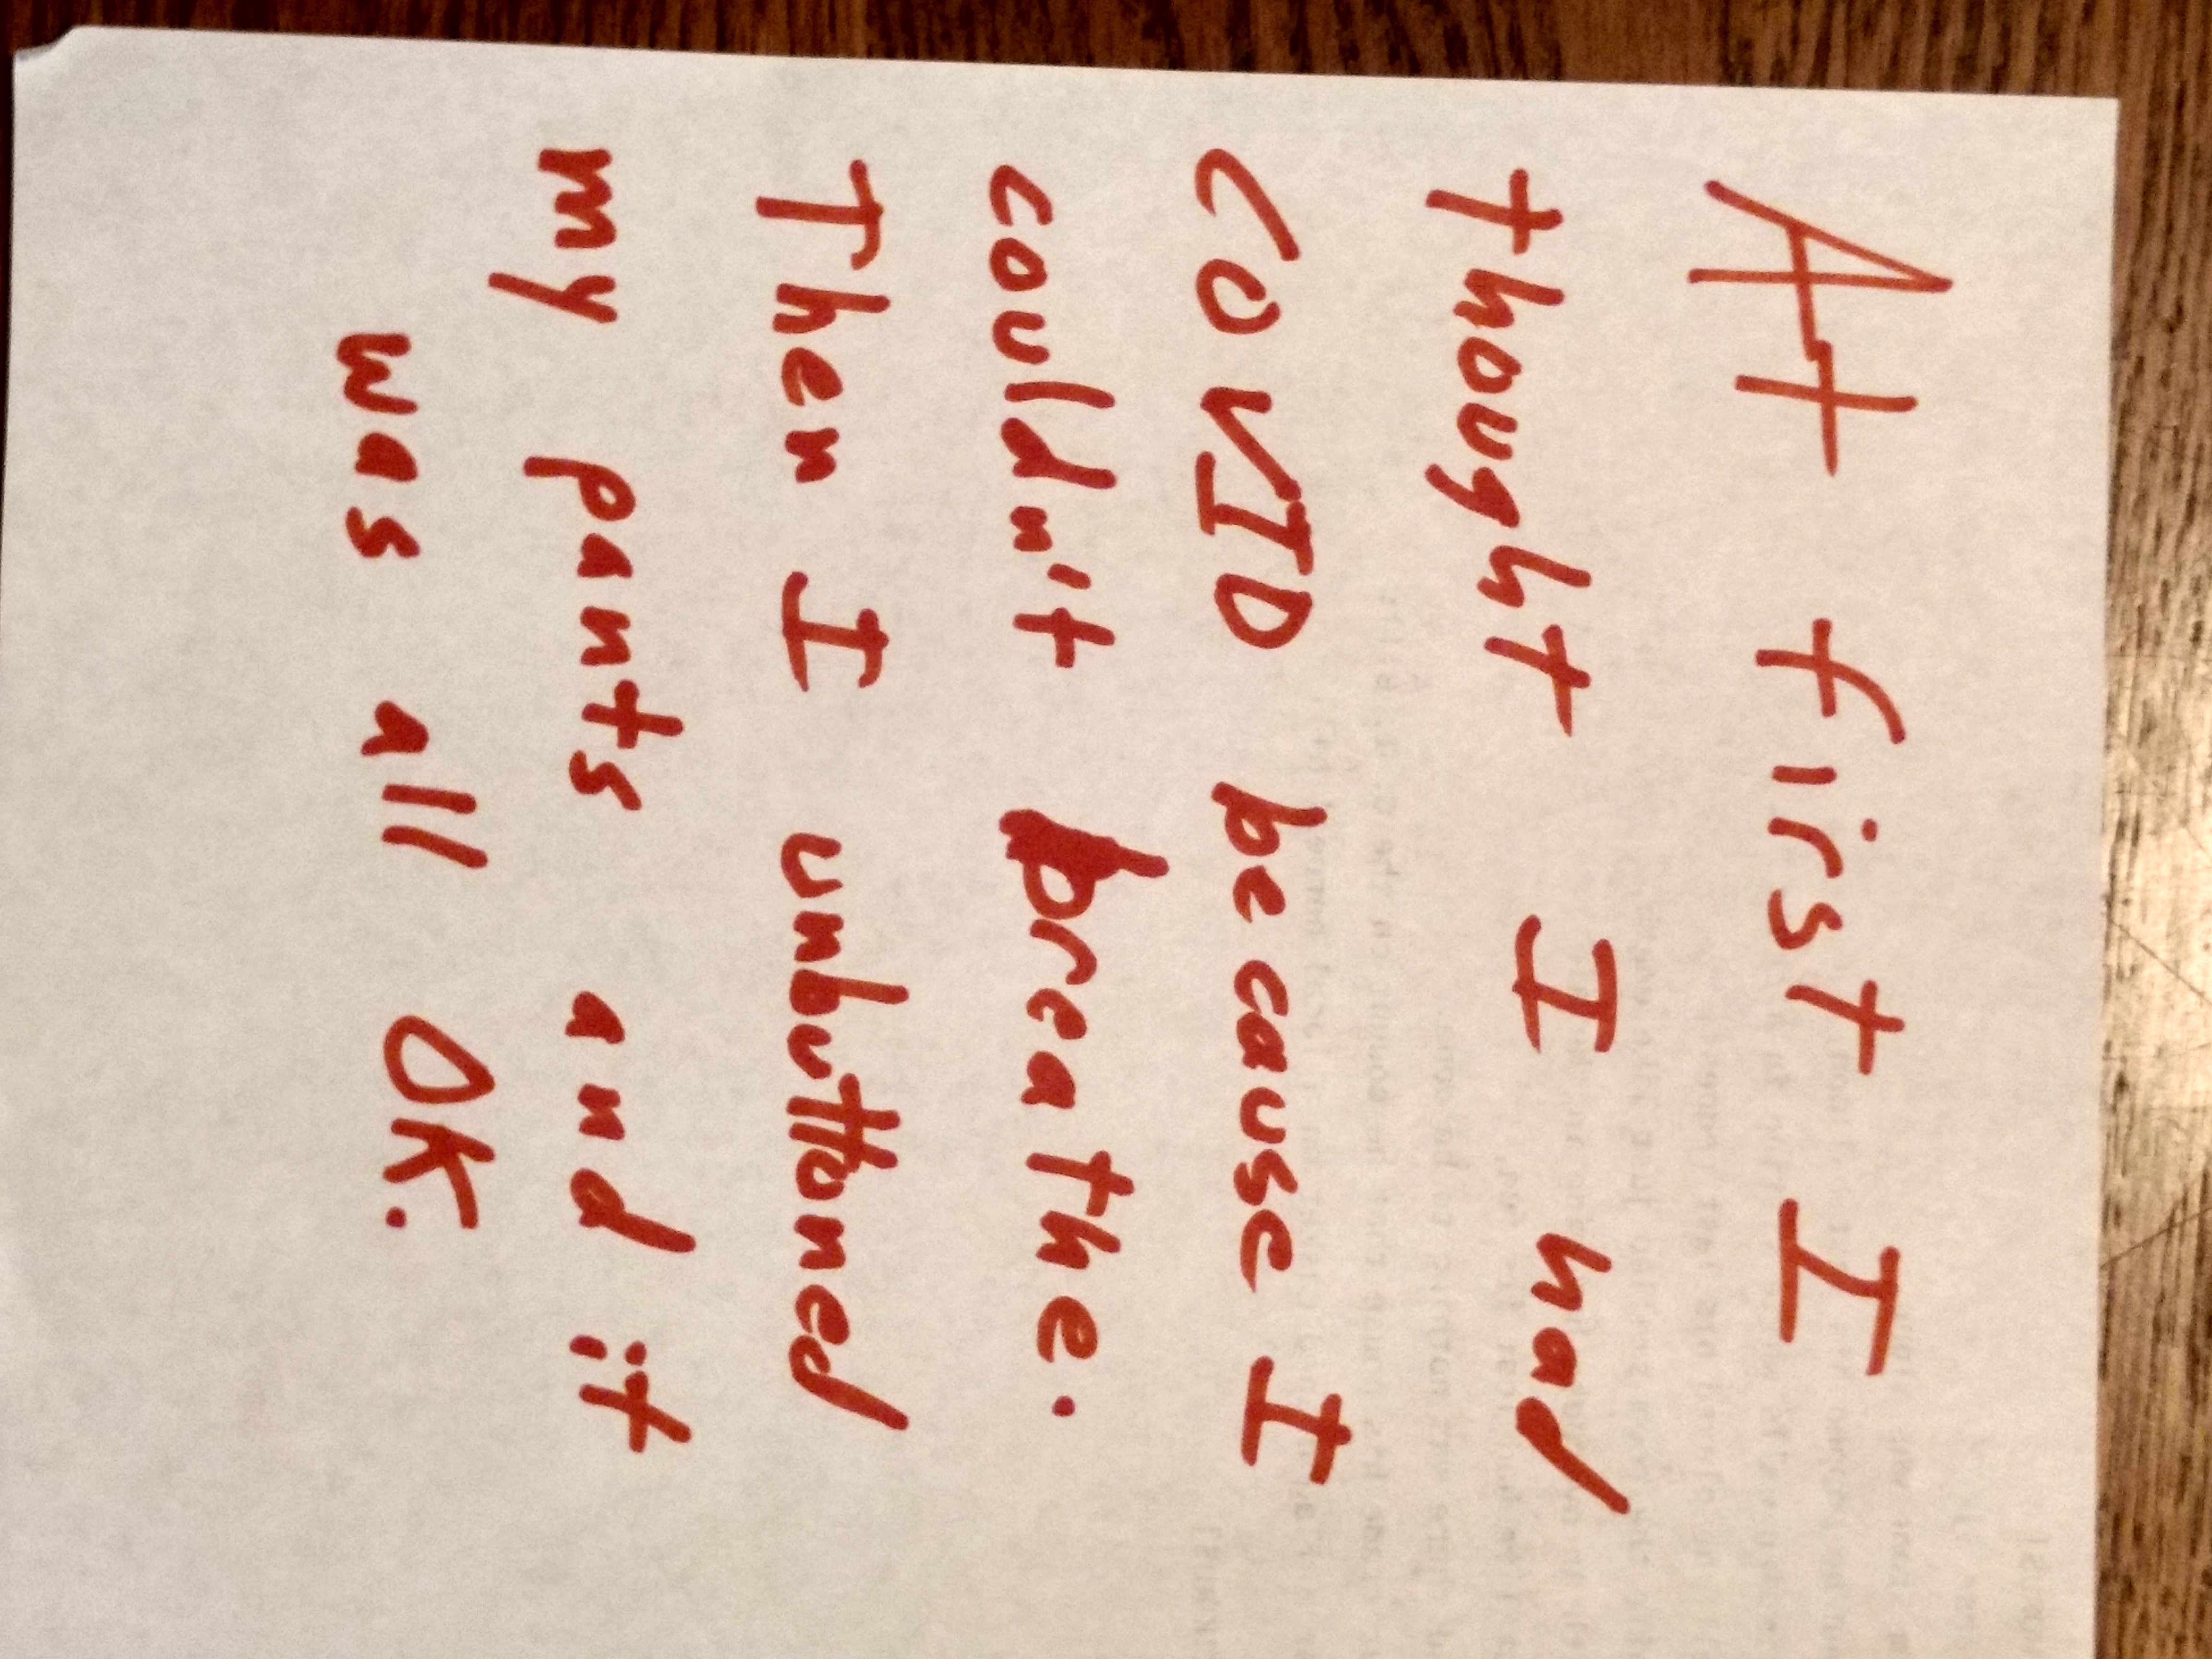 At first I
thought I had
COVID because I
couldn't breathe.
Then I unbuttoned
my pants and it
was all OK.